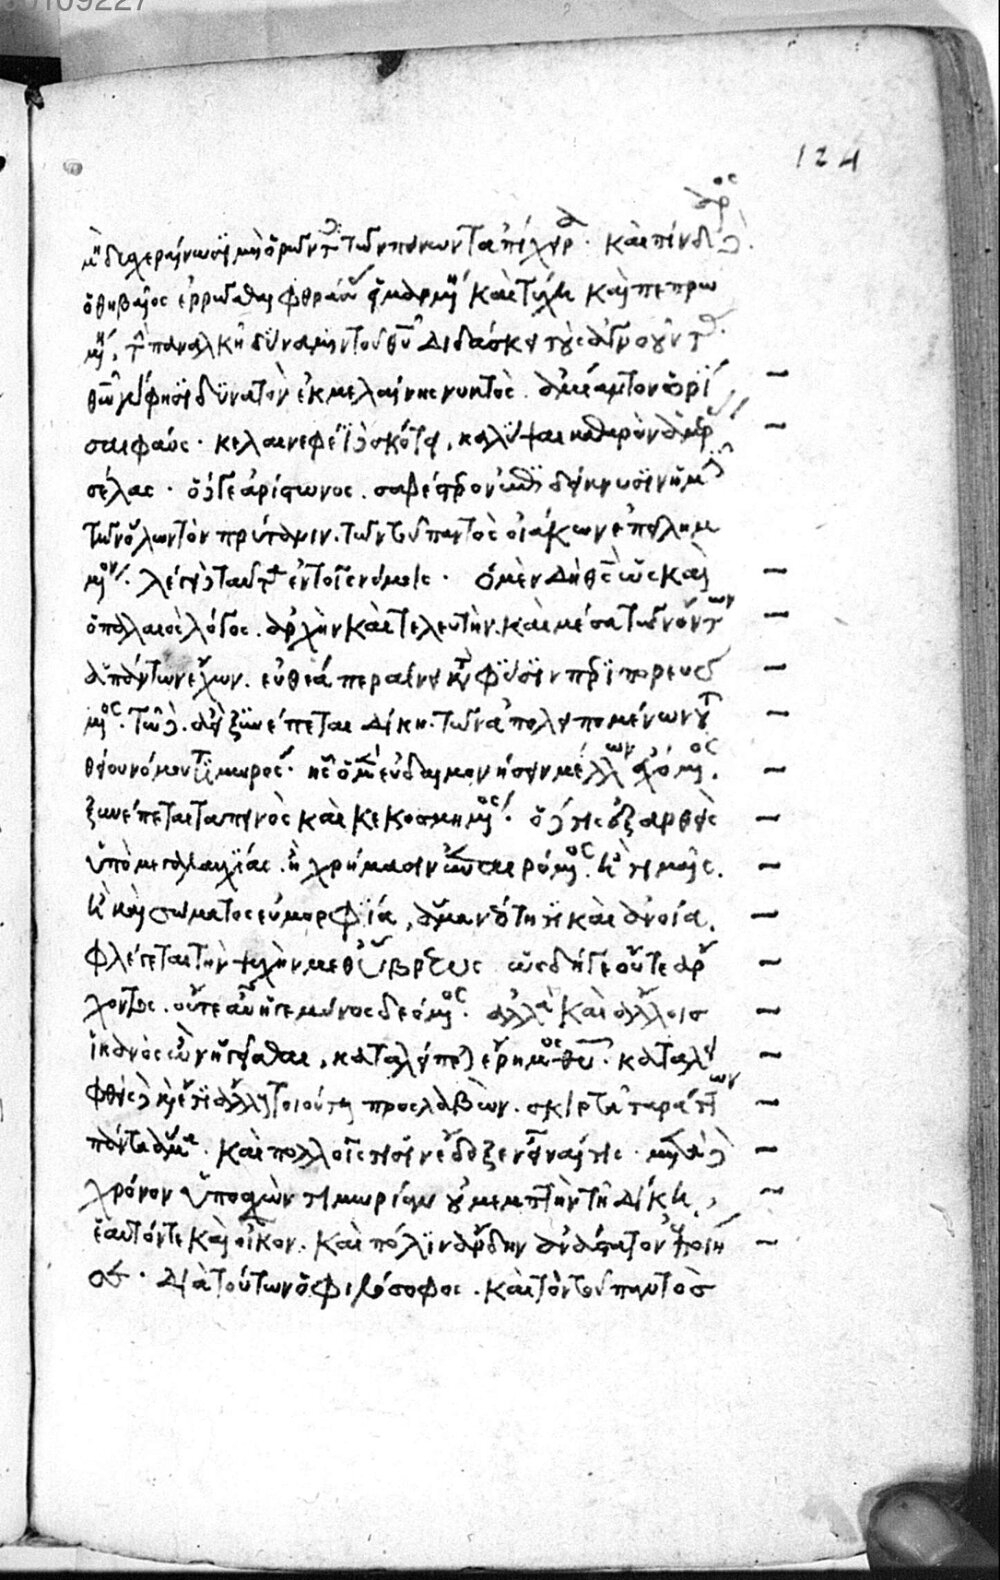 μὴ δυσχεραίνωσι μὴ ὁρῶντες τῶν πόνων τὰ ἐπίχειρα. καὶ πίνδαρος δὲ
ὁ θηβαῖος ἐρρῶσθαι φράσας εἱμαρμένη καὶ τύχη καὶ πεπρω
μένη, τὴν παναλκῆ δύναμιν τοῦ θεοῦ διδάσκει τοὺς ἀγνοοῦντας.
θεῷ γάρ φησι δυνατὸν ἐκ μελαίνης νυκτὸς. ἀμίαντον ὄρ
σαι φάος. κελαινεφέϊ δὲ σκότει, καλύψαι καθαρὸν ἁμέρας
σέλας. ὁ δέ γε ἀρίστωνος. σαφέστερον δείκνυσιν ἡμῖν
τῶν ὅλων τὸν πρύτανιν. τῶν τοῦ παντὸς οἰάκων ἐπειλημ
μένον. λέγει δὲ ταῦτα ἐν τοῖς νόμοις. ὁ μὲν δὴ θεὸς ὡς καὶ
ὁ παλαιὸς λόγος. ἀρχὴν καὶ τελευτὴν. καὶ μέσα τῶν ὄντων
ἁπάντων ἔχων. εὐθέα περαίνει κατὰ φύσιν περιπορευό
μενος. τῷ δὲ. ἀεὶ ξυνέπεται δίκη. τῶν ἀπολειπομένων τοῦ
θείου νόμου τιμωρός. ἧς ὁ μὲν εὐδαιμονήσειν μέλλων ἐχόμενος.
ξυνέπεται ταπεινὸς καὶ κεκοσμημένος. ὁ δέ τις ἐξαρθεὶς
ὑπὸ μεγαλαυχίας. ἢ χρήμασιν ἐπαιρόμενος. ἢ τιμαῖς.
ἢ καὶ σώματος εὐμορφία, ἅμα νεότητι καὶ ἀνοία.
φλέγεται τὴν ψυχὴν μεθ' ὕβρεως ὡς δή γε οὔτε ἄρ
χοντος. οὔτε αὖ ἡγεμόνος δεόμενος. ἀλλὰ καὶ ἄλλοις
ἱκανὸς ὢν ἡγεῖσθαι, καταλείπεται ἔρημος θεοῦ. καταλει
φθεὶς δὲ καὶ ἔτι ἄλλους τοιούτους προσλαβὼν. σκιρτᾶ ταράττων
πάντα ἅμα. καὶ πολλοῖς τισὶν ἔδοξεν εἶναί τις. μετὰ δὲ
χρόνον ὑποσχὼν τιμωρίαν οὐ μεμπτὴν τῆ δίκη,
ἑαυτόν τε καὶ οἶκον. καὶ πόλιν ἄρδην ἀνάστατον ἐποίη
σε. διὰ τούτων ὁ φιλόσοφος. καὶ τὸν τοῦ παντὸς